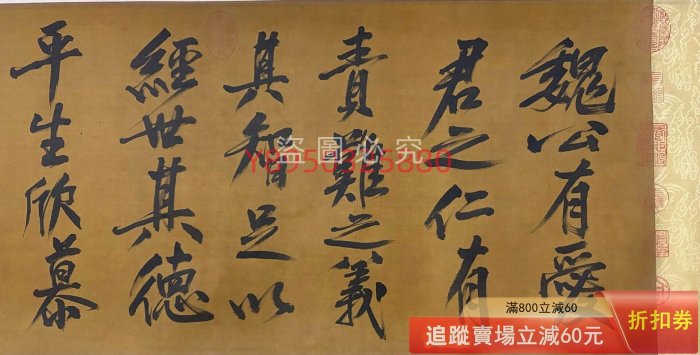 魏公有愛
君之仁有
責難之義
其智足以
經世其德
平生欣慕
盜圖必究
滿800立減60
追蹤賣場立減60元
折扣券